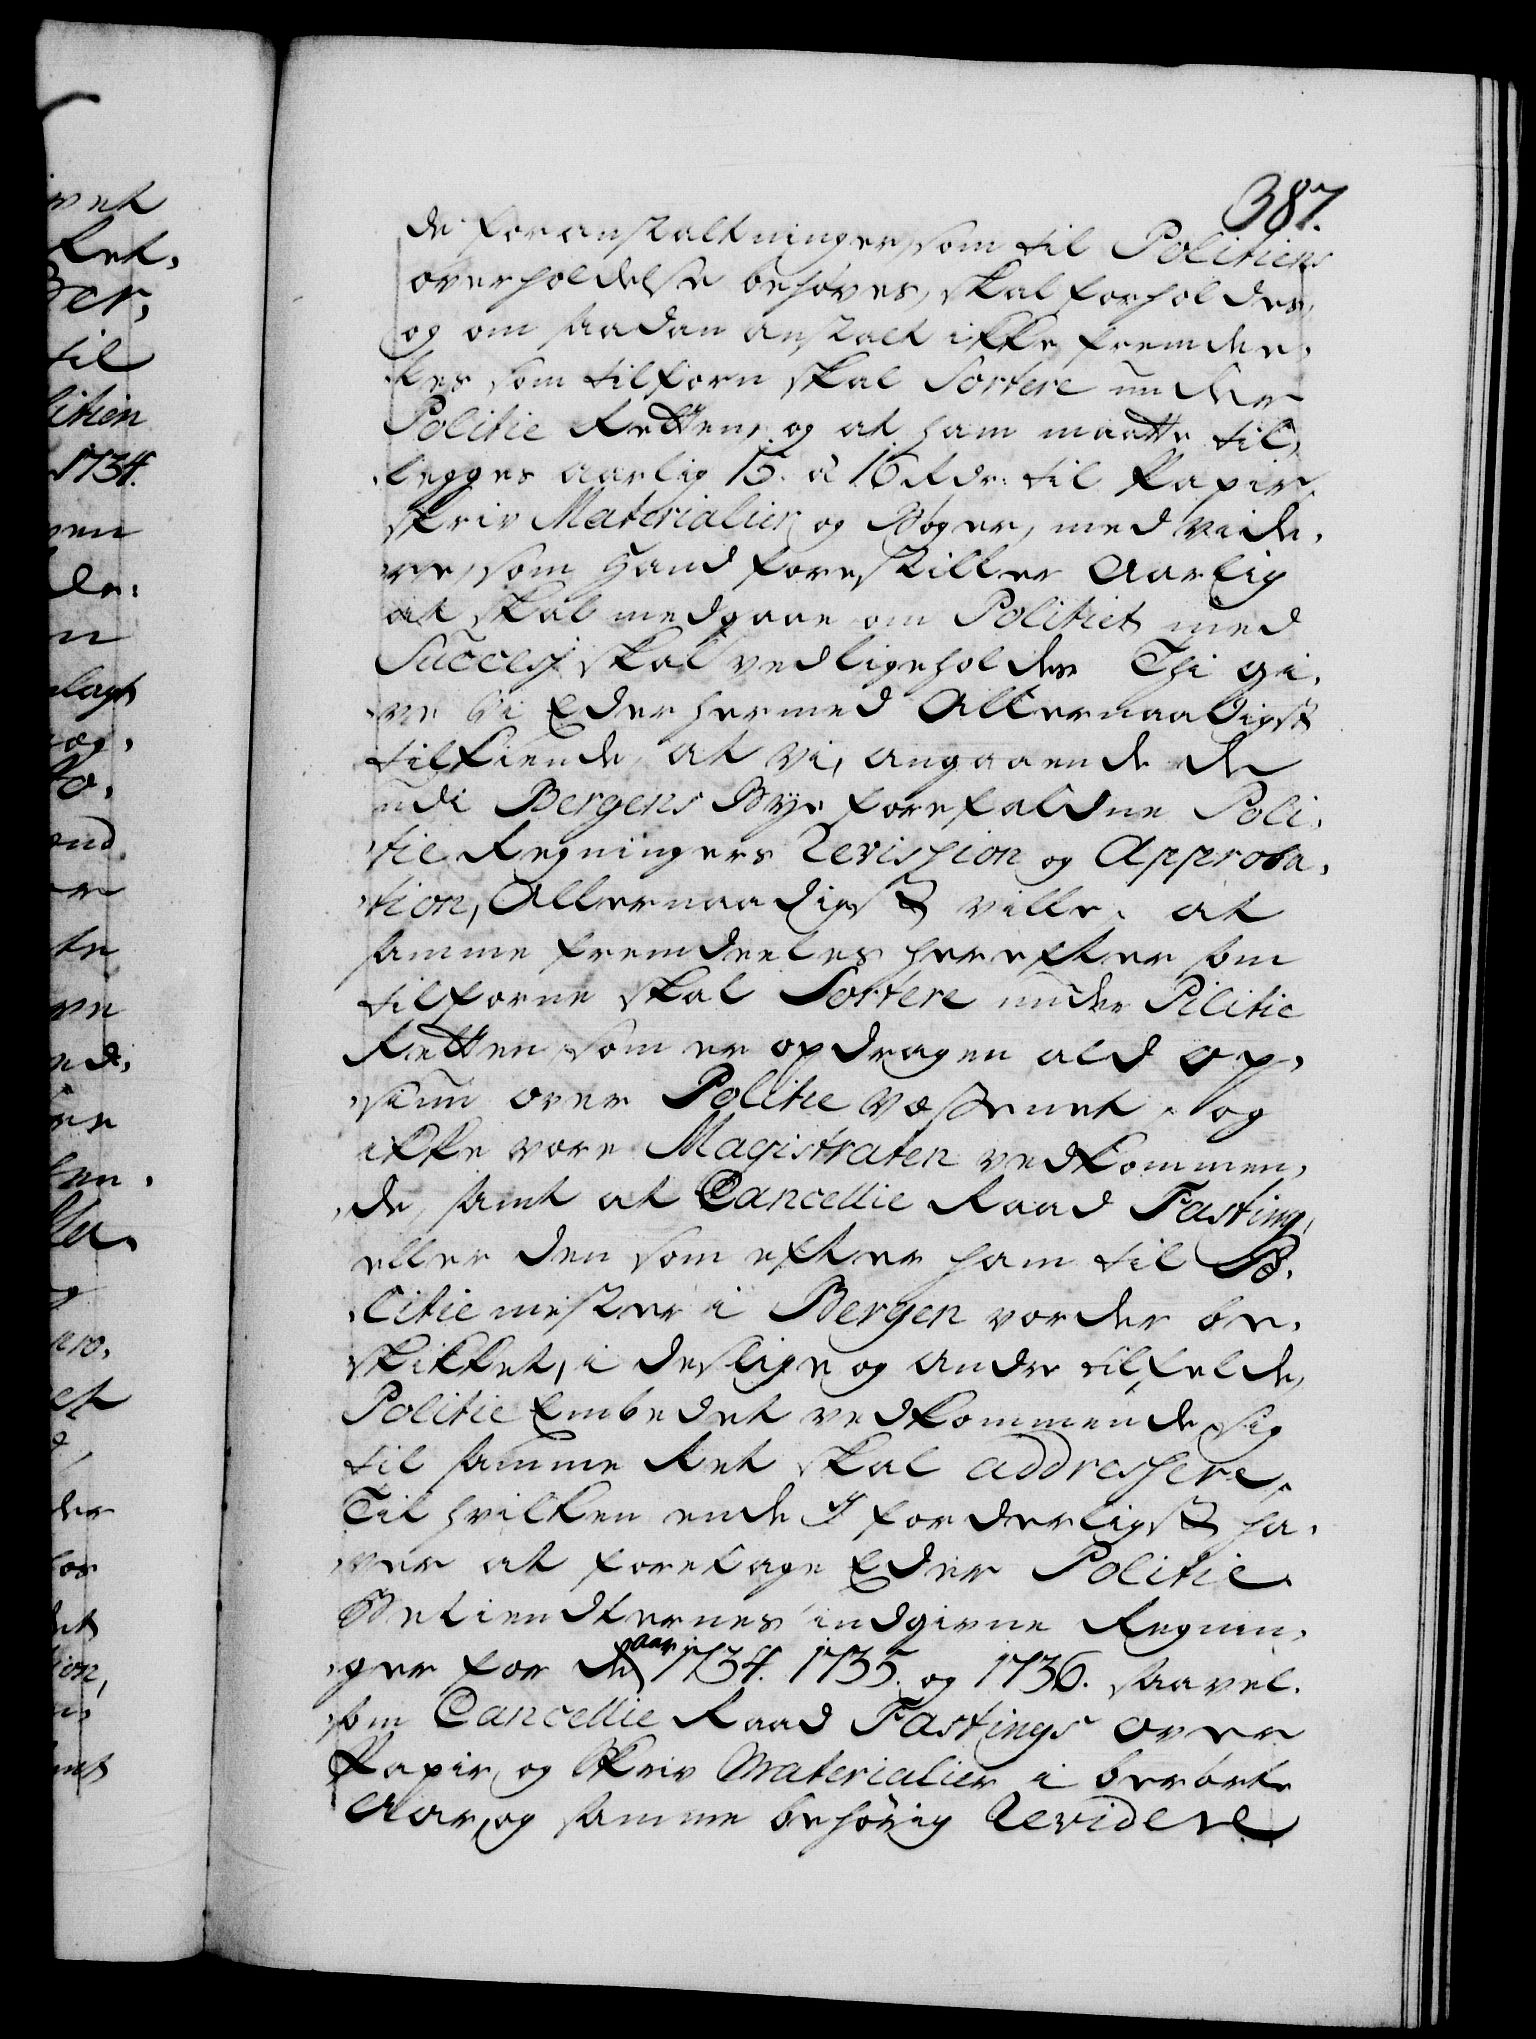 387.
de foranstaltninger, som til Politiens
overholdelse behøves, skal forholdes,
og om saadan anstalt ikke fremdee-
les som tilforn skal Sortere under
Politie Retten, og at ham maatte til-
legges aarlig 15. à 16 Rdr: til Papir,
skriv Materialier og Bøger, med vide-
re, som Hand forestiller Aarlig
at skal medgaae om Politiet med
Success skal vedligeholdes Thi gi-
ve Vi Eder hermed Allernaadigst
tilkiende, at vi, angaaende de
udi Bergens Bye forefaldne Poli-
tie Regningers Revission og Approba-
tion, Allernaadigst ville, at
samme fremdeeles herefter som
tilforne skal Sortere under Pilitie
Retten, som er opdragen ald Op-
siun over Politie Væsenet, og
ikke vore Magistraten vedkommen-
de, samt at Cancellie Raad Fasting,
eller den som efter ham til Po-
litiemester i Bergen vorder be-
skikket, i deslige og andre tilfelde,
Politie Embedet vedkommende, sig
til samme Ret skal addressere,
Til hvilken ende I forderligst ha-
ver at foretage Eder Politie
Betiendternes indgivne Regnin-
ger for de aar 1734. 1735. og 1736. saavel-
som Cancellie Raad Fastings over
Papir, og Skriv Materialier i berørte
Aar, og samme behørig Revidere